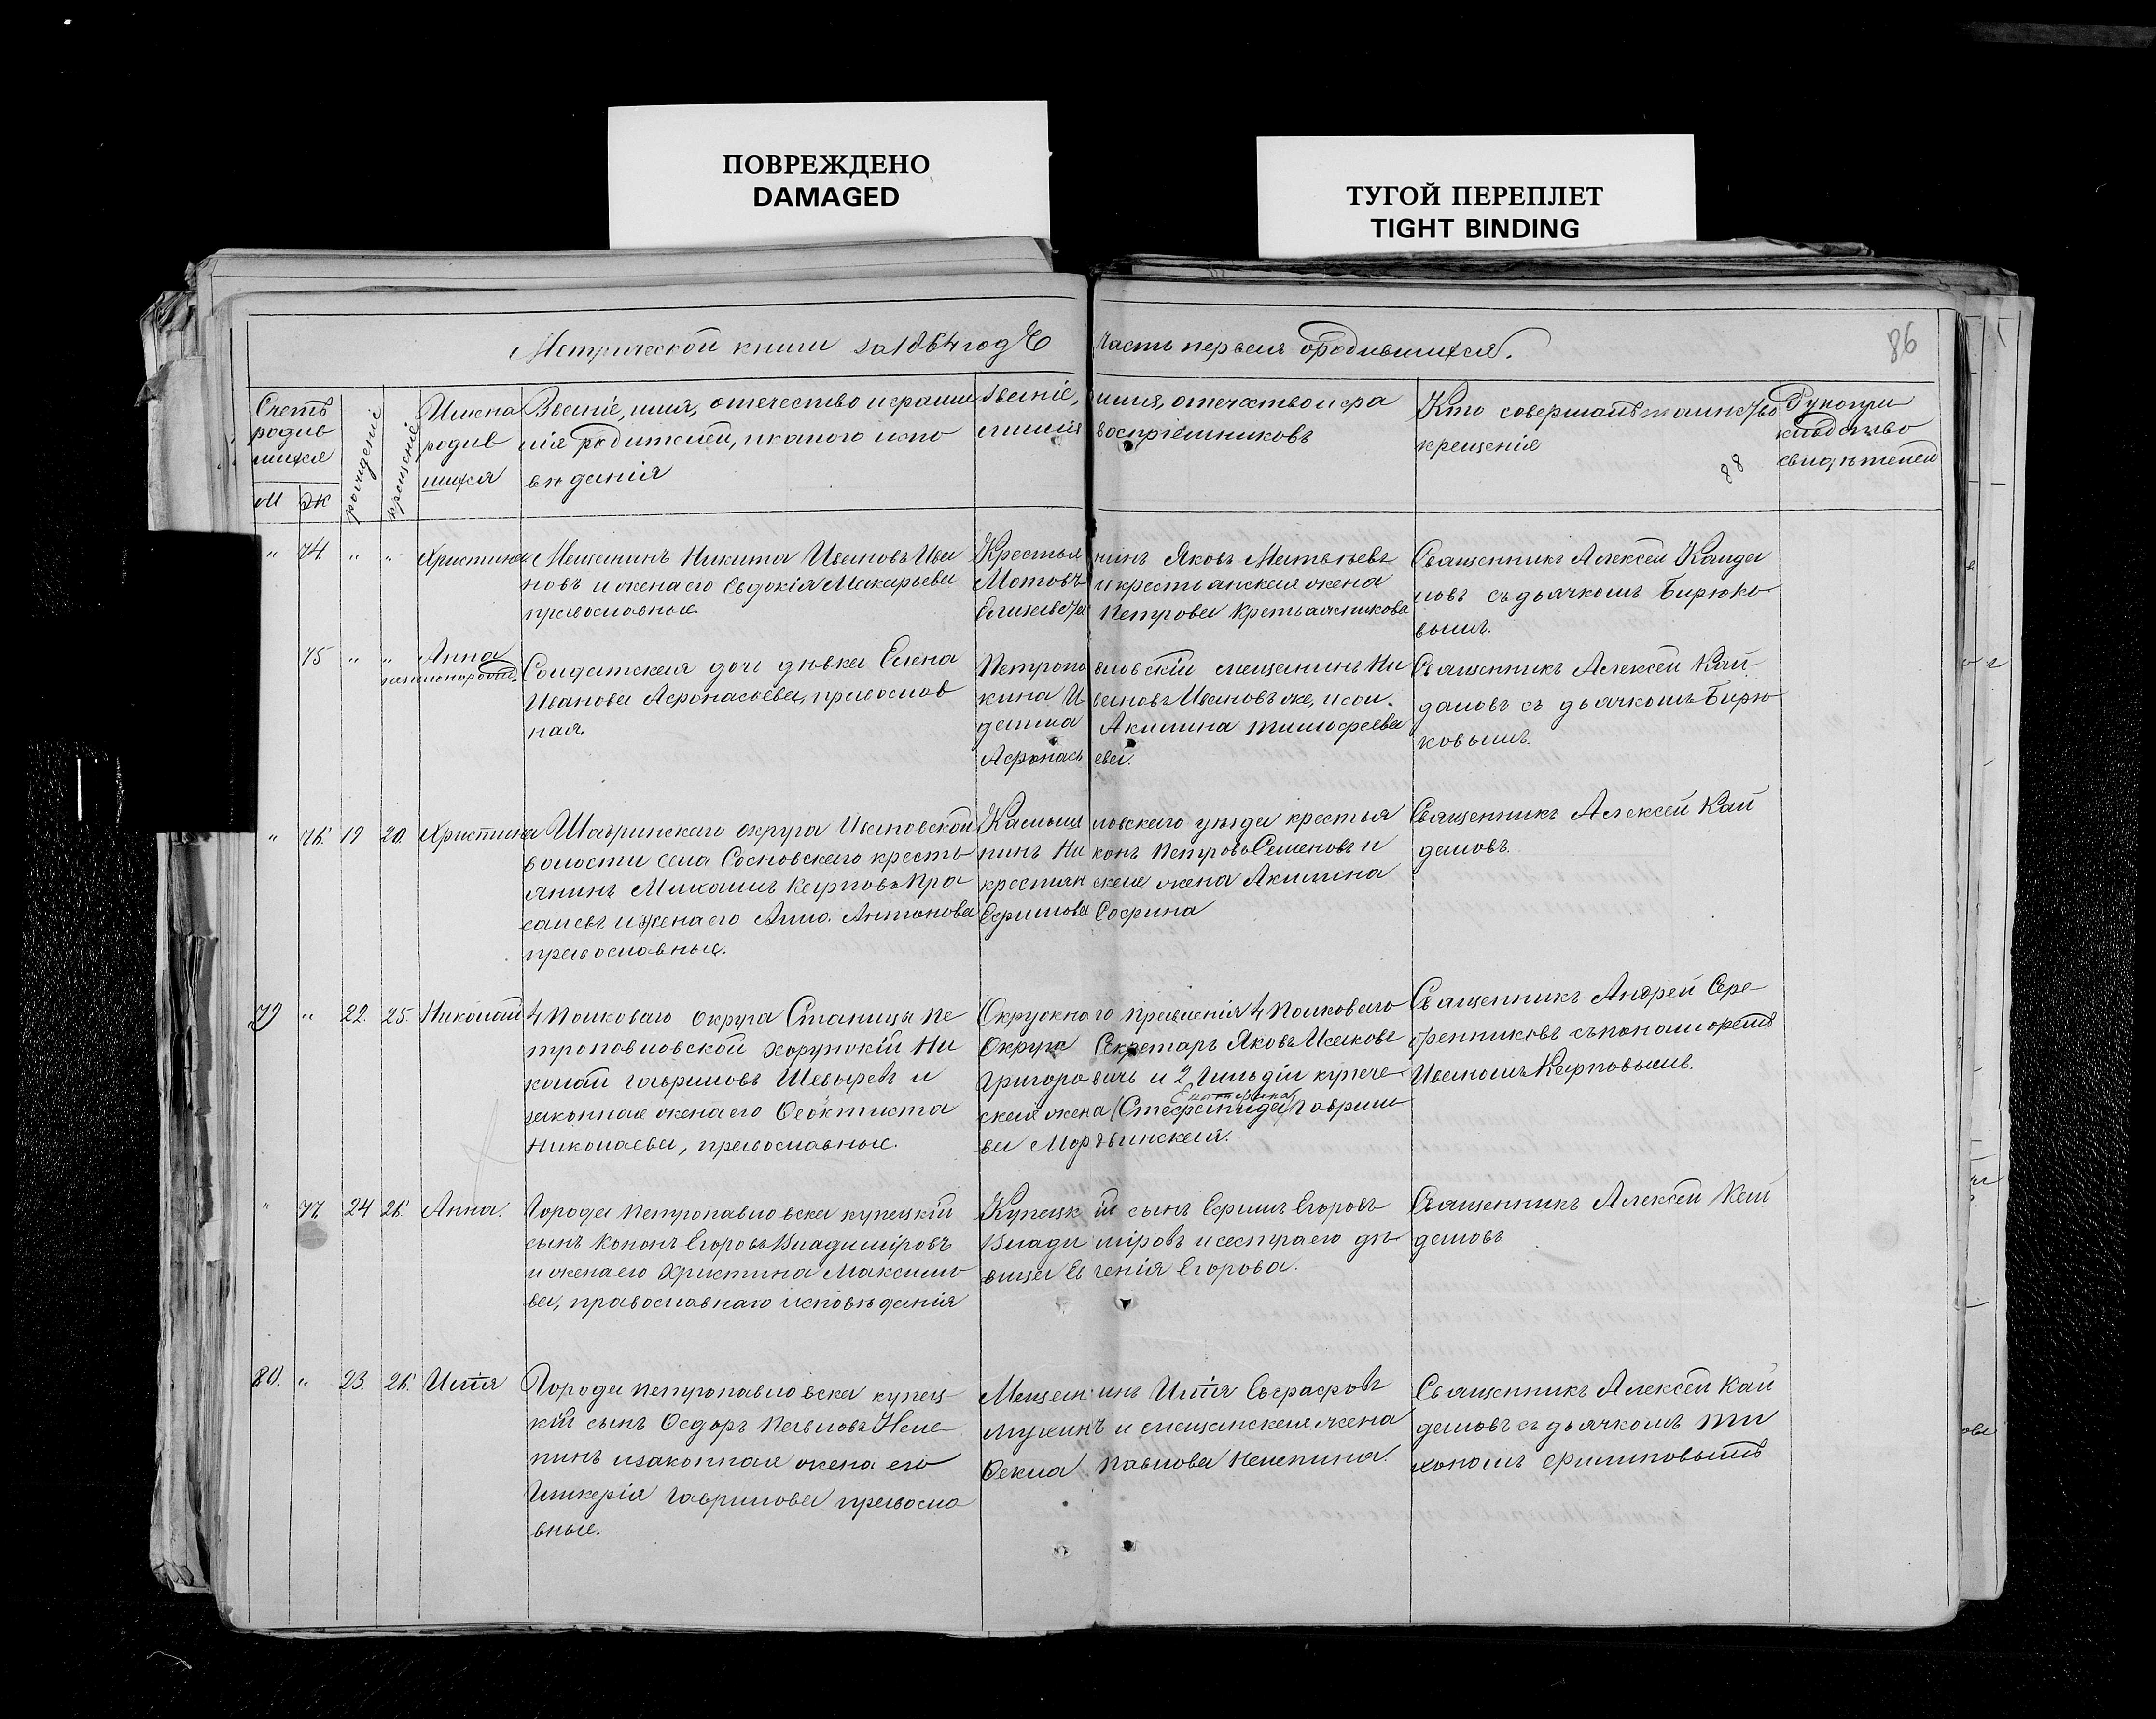 ПОВРЕЖДЕНО
DAMAGED
ТУГОЙ ПЕРЕПЛЕТ
TIGHT BINDING
86
Метрической книги за 1864 годъ Часть первая ородившихся.
Счетъ
родив
шихся
М Ж
рожденіе
крещеніе
Имена
родив
шихся
Званіе, имя, отечество и фами
лія родителей, и какого испо
вѣданія
Званіе, имя, отечество и фа
милія воспріемниковъ
Кто совершалъ таинство
крещенія
88
Рукопри
кладство
свидѣтелей
" 74 " " Христина
Мещанинъ Никита Ивановъ Ива
новъ и жена его Евдокія Макарьева
православные
Крестьянинъ Яковъ Матвѣевъ
Мотовъ и крестьянская жена
Елизавета Петрова
Священникъ Алексѣй Кайда
ловъ съ дьячкомъ Бирюко
вымъ.
75 " " Анна
незаконорожд.
Солдатская дочь дѣвка Елена
Иванова Афонасьева, православ
ная.
Петропавловскій мещанинъ Ни
кита Ивановъ Ивановъ же, и сол
датка Акилина Тимофеева
Афонасьева.
Священникъ Алексѣй Кай-
даловъ съ дьячкомъ Бирю
ковымъ.
" 76. 19 20. Христина
Шадринскаго округа Ивановской
волости села Сосновскаго кресть
янинъ Михаилъ Карповъ
и жена его Анна Антонова
православные.
Камышловскаго уѣзда крестья
нинъ Никонъ Петровъ Семеновъ и
крестьянская жена Акилина
Ефимова Софрина
Священникъ Алексѣй Кай
даловъ.
79 " 22. 25. Николай
4 Полковаго округа Станицы Пе
тропавловской хорунжій Ни
колай Гавриловъ Шевыревъ и
законная жена его Феоктиста
Николаева, православные.
Окружнаго правленія 4 Полковаго
Округа Секретарь Яковъ Исаковъ
Григоровичь и 2 Гильдіи купече
Екатерина
ская жена (Стефанида) Гаврило
ва Мордвинская.
Священникъ Андрей Сере-
бренниковъ съ пономоремъ
Иваномъ Карповымъ.
" 77 24 26. Анна.
Города Петропавловска купецкій
сынъ Кононъ Егоровъ Владиміровъ
и жена его Христина Максимо
ва, православнаго исповѣданія
Купецкій сынъ Ефимъ Егоровъ
Владиміровъ и сестра его дѣ
вица Евгенія Егорова.
Священникъ Алексѣй Кай
даловъ
80. " 23. 26. Илія
Города Петропавловска купец
кій сынъ Федоръ Павловъ Неле
пинъ и законная жена его
Гликерія Гаврилова правосла
вные.
Мещанинъ Илія Евграфовъ
Мухинъ и мещанская жена
Фекла Павлова Нелепина.
Священникъ Алексѣй Кай
даловъ съ дьячкомъ Ти
хономъ Филиповымъ